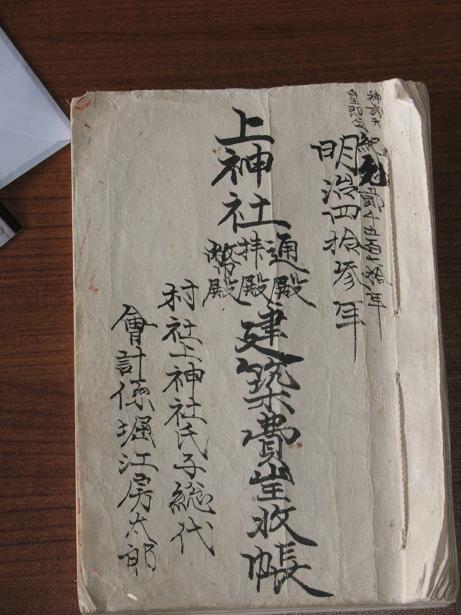 神武天
皇即位紀元貳千五百七拾年
明治四拾参年
上神社
通殿
拝殿
幣殿
建築費豈收帳
村社上神社氏子総代
會計係堀江房太郎